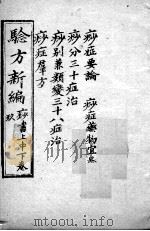 痧症要論　痧症藥物宜忌
痧分三十症治
痧別兼類變三十八症治
痧症羣方
驗方新編　痧書上中下卷
玖